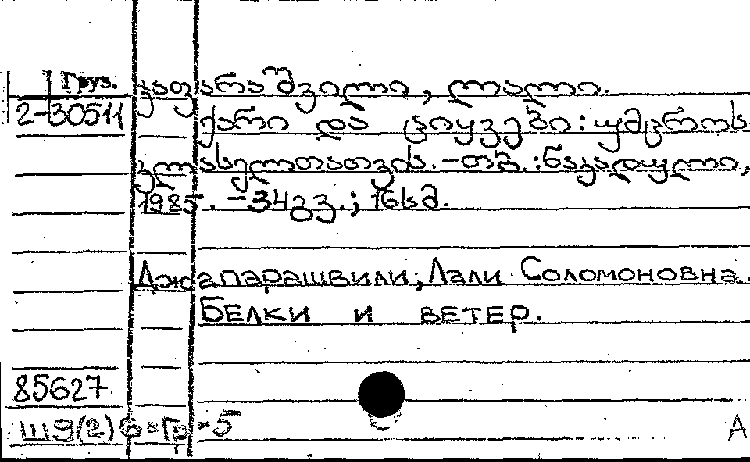 Груз.
2-30511
ჯაფარაშვილი, ლალი.
ქარი და ციყვები: უმცროს
კლასელთათვის. - თბ.: ნაკადული,
1985. - 34 გვ.; 16 სმ.
Джапарашвили, Лали Соломоновна.
Белки и ветер.
85627
Ш9(2)6=Гр-5
А